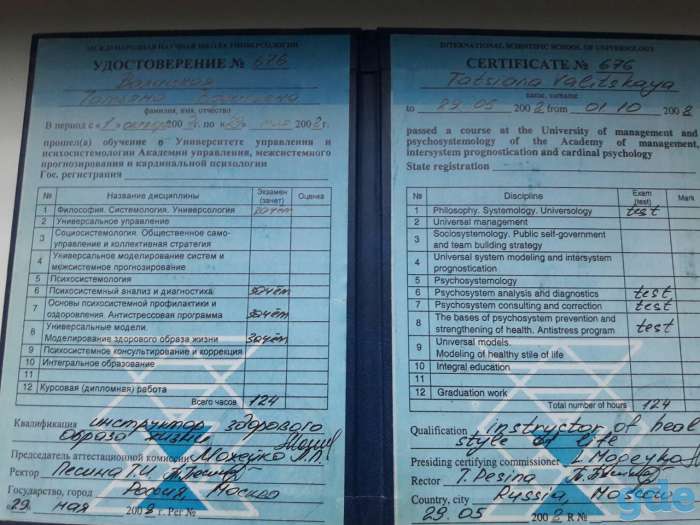 МЕЖДУНАРОДНАЯ НАУЧНАЯ ШКОЛА УНИВЕРСОЛОГИИ
УДОСТОВЕРЕНИЕ № 676
Татьяна
фамилия, имя, отчество
В период с «1» 200 по «29» мая 2002 г.
прошел(а) обучение в Университете управления и
психосистемологии Академии управления, межсистемного
прогнозирования и кардинальной психологии
Гос. регистрация
№ Название дисциплины Экзамен (зачет) Оценка
1 Философия. Системология. Универсология зачёт
2 Универсальное управление
3 Социосистемология. Общественное само-
управление и коллективная стратегия
4 Универсальное моделирование систем и
межсистемное прогнозирование
5 Психосистемология
6 Психосистемный анализ и диагностика зачёт
7 Основы психосистемной профилактики и
оздоровления. Антистрессовая программа зачёт
8 Универсальные модели.
Моделирование здорового образа жизни зачёт
9 Психосистемное консультирование и коррекция
10 Интегральное образование
11
12 Курсовая (дипломная) работа
Всего часов 124
Квалификация инструктор здорового
образа жизни
Председатель аттестационной комиссии Мохейко Л.П.
Ректор Песина Т.И.
Государство, город Россия, Москва
«29» мая 2002 г. Рег №
INTERNATIONAL SCIENTIFIC SCHOOL OF UNIVERSOLOGY
CERTIFICATE № 676
Tatsiana Valitskaya
name, surname
to 29.05 2002 from 01.10 200
passed a course at the University of management and
psychosystemology of the Academy of management,
intersystem prognostication and cardinal psychology
State registration
№ Discipline Exam (test) Mark
1 Philosophy. Systemology. Universology test
2 Universal management
3 Sociosystemology. Public self-government
and team building strategy
4 Universal system modeling and intersystem
prognostication
5 Psychosystemology
6 Psychosystem analysis and diagnostics test
7 Psychosystem consulting and correction test
8 The bases of psychosystem prevention and
strengthening of health. Antistress program test
9 Universal models.
Modeling of healthy stile of life
10 Integral education
11
12 Graduation work
Total number of hours 124
Qualification instructor of heal
style of life
Presiding certifying commissioner L.
Rector T. Pesina
Country, city Russia, Moscow
29.05 2002 R №
gde